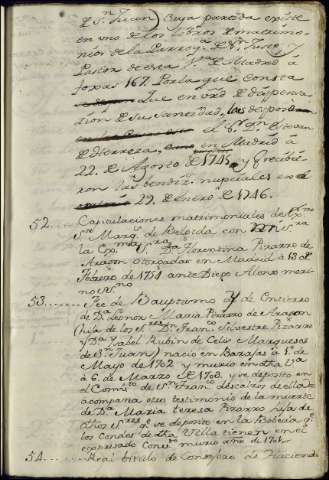 Sn Juan) Cuya partida existe
en uno de los libros de matrimo-
nios de la Parroqa. de Sn. Justo, y
Pastor de esta Va. de Madrid a
foxas 167. Por la que consta
que en vrd. de dispensa-
cion de su Santidad, los desposo
el Sr. Dn. Estevan
de Herreza, en Madrid a
22. de Agosto de 1745. y recibie-
ron las bendics. nupciales en el
29. de Enero de 1746.
52. Capitulaciones matrimoniales del Exmo.
Sr. Marqs. de Velgida con
la Exma. Sra. Da. Florentina Pizarro de
Aragon otorgadas en Madrid a 13 de
Febrero de 1754 ante Diego Alonso mari-
no Essno.
53. Fee de Bauptismo y de Entierro
de Da. Leonor Maria Pizarro de Aragon
(hija de los Sres. Dn. Franco. Silvestre Pizarro
y Da. Ysabel Rubin de Celis Marqueses
de Sn. Juan) nacio en Barajas a 1o. de
Mayo de 1702 y murio en dha. Va.
a 6. de Marzo de 1708. y se deposito en
el Comto. de Sn. Franco. descalzos de ella
acompaña otro testimonio de la muerte
de Da. Maria teresa Pizarro hija de
dhos Sres. q. se deposito en la Bobeda q.
los Condes de dha. Villa tienen en el
expresado Convto. murio año de 1701.
54. Real titulo de Consejero de Hacienda